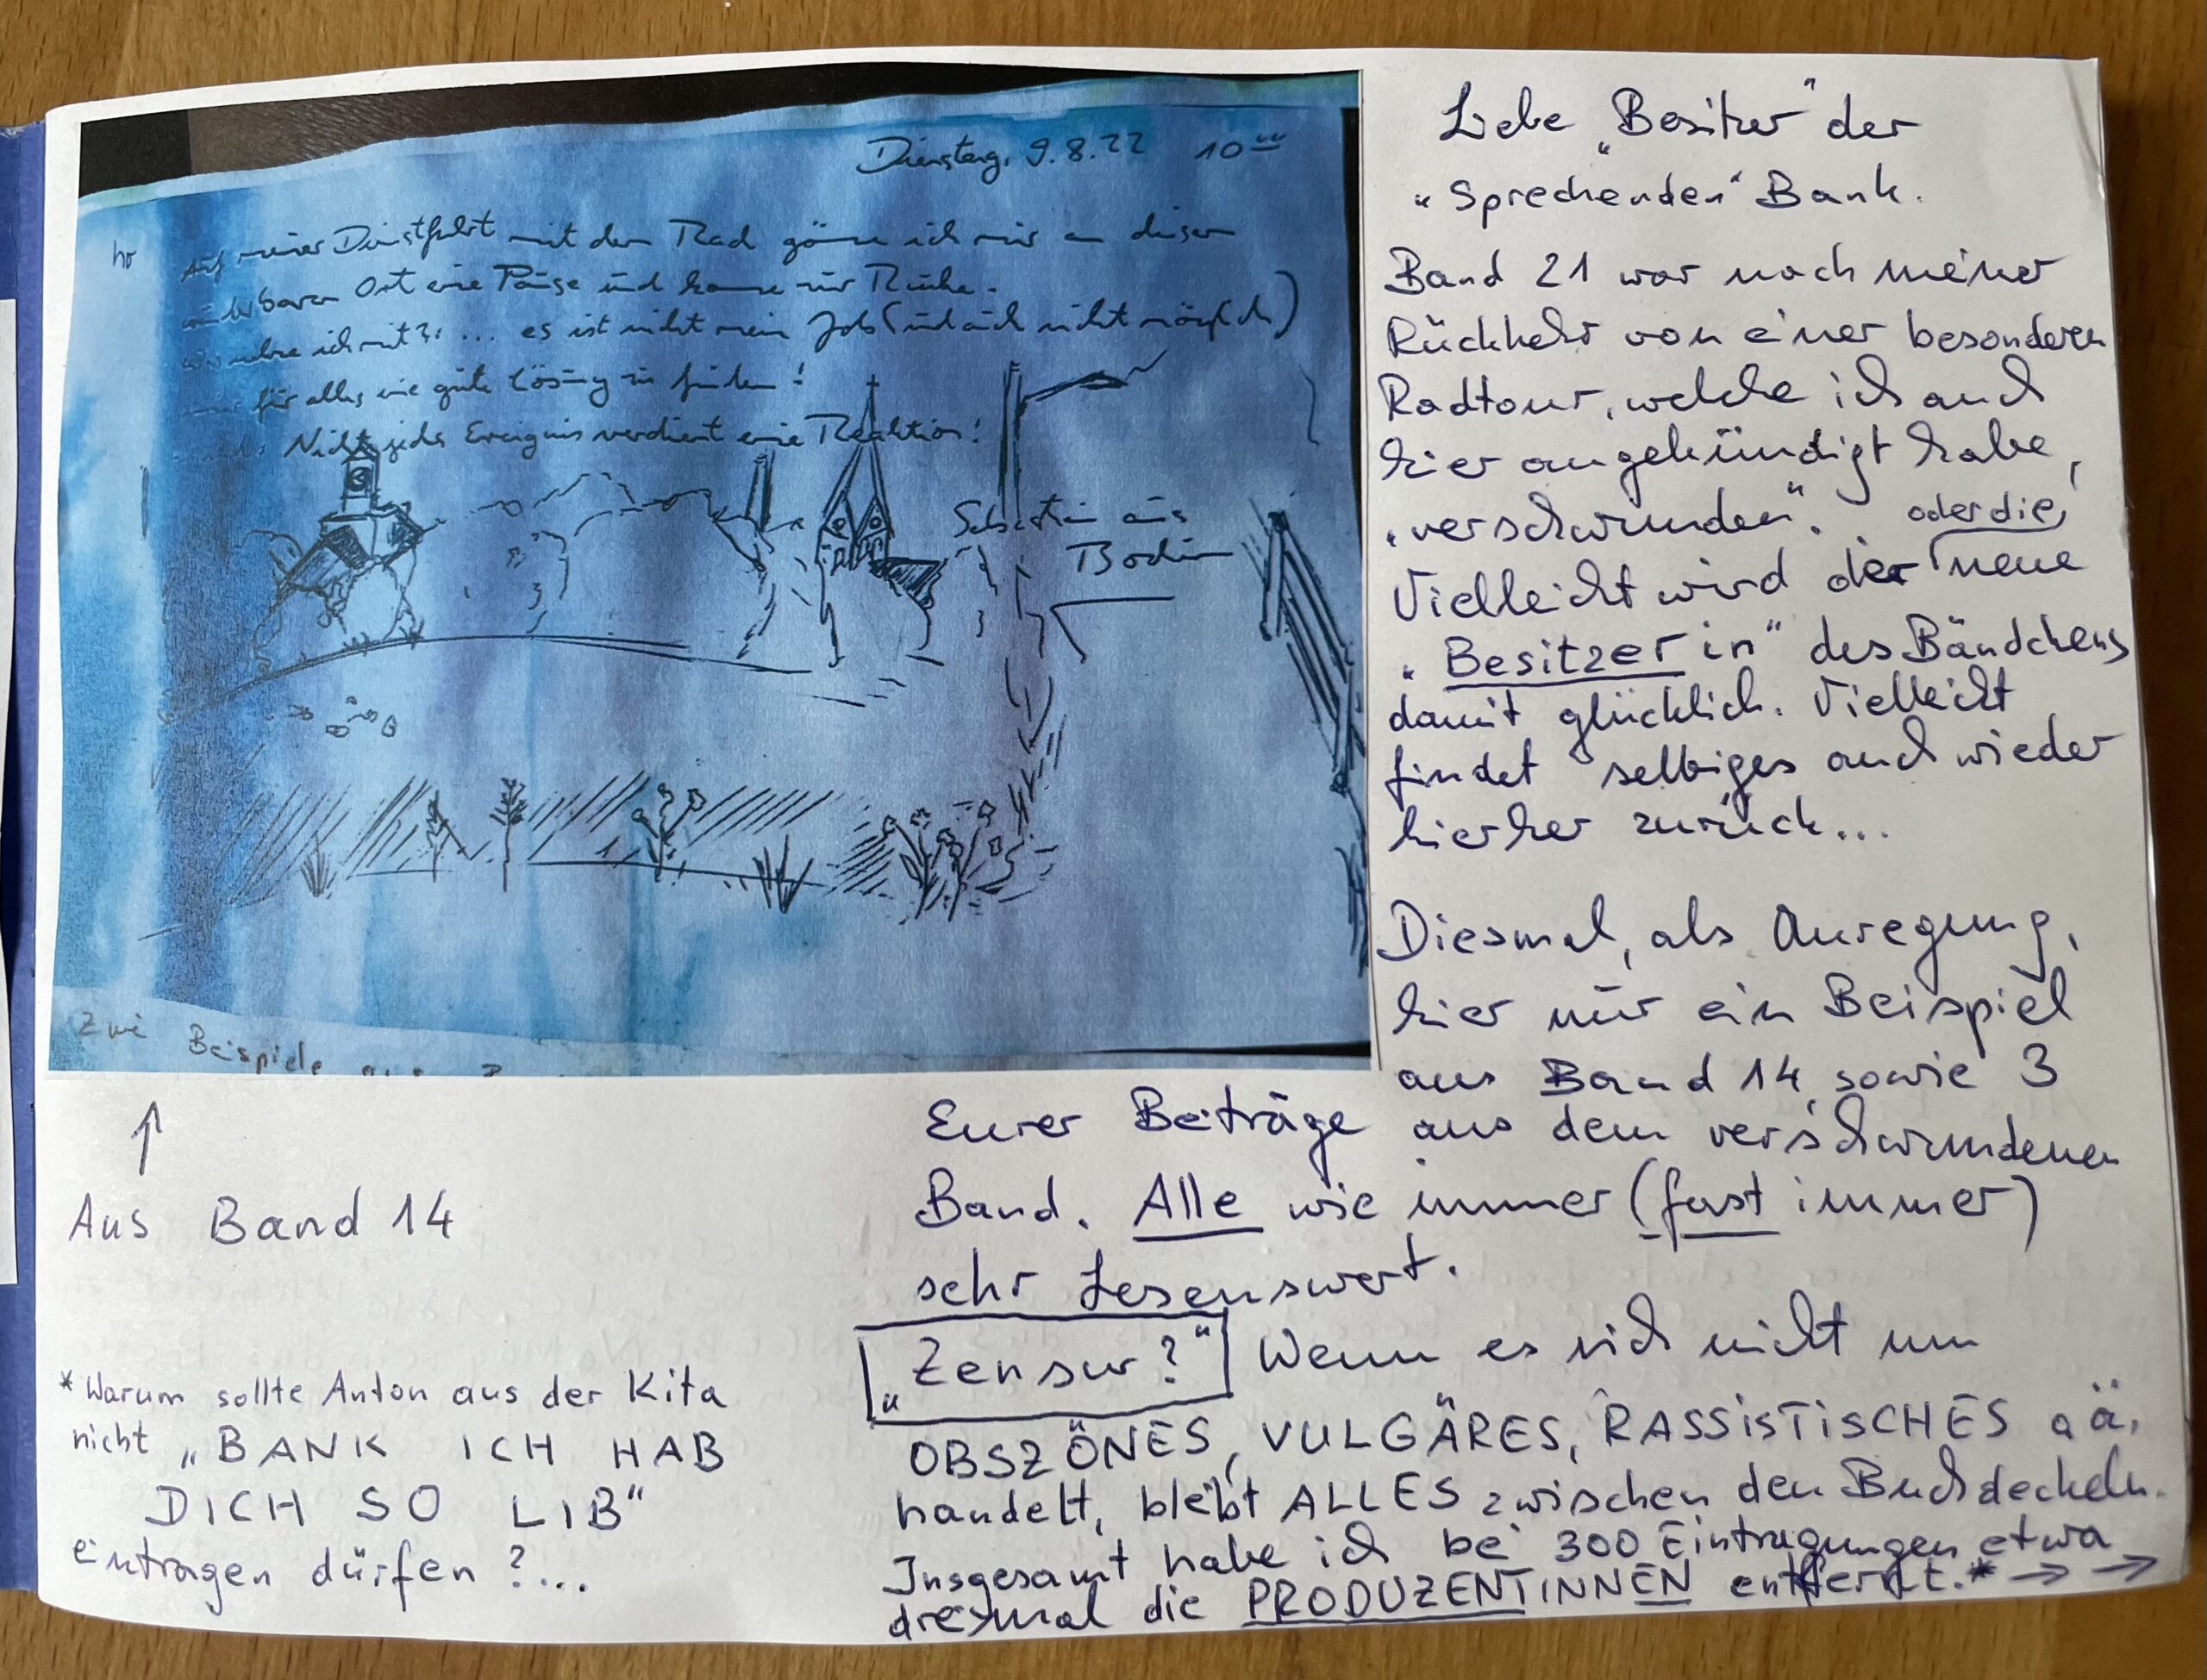 Dienstag, 9.8.22 10 00
Auf meiner Dienstfahrt mit dem Rad gönne ich mir an diesem
Ort eine Pause und komme zur Ruhe.
ich mit?: ... es ist nicht mein Job (und auch nicht möglich)
für alles eine gute Lösung zu finden!
Nicht jedes Ereignis verdient eine Reaktion!
Sebastian aus
Zwei Beispiele aus
↑
Aus Band 14
* Warum sollte Anton aus der Kita
nicht „BANK ICH HAB
DICH SO LIB"
eintragen dürfen ?...
Liebe „Besitzer" der
„Sprechenden" Bank.
Band 21 war nach meiner
Rückkehr von einer besonderen
Radtour, welche ich auch
hier angekündigt habe,
„verschwunden". oder die
Vielleicht wird der neue
„Besitzer in" des Bändchens
damit glücklich. Vielleicht
findet selbiges auch wieder
hierher zurück...
Diesmal, als Anregung,
hier nur ein Beispiel
aus Band 14, sowie 3
Eurer Beiträge aus dem verschwundenen
Band. Alle wie immer (fast immer)
sehr Lesenswert.
„Zensur?" Wenn es sich nicht um
OBSZÖNES, VULGÄRES, RASSISTISCHES o ä.
handelt, bleibt ALLES zwischen den Buchdeckeln.
Insgesamt habe ich bei 300 Eintragungen etwa
dreimal die PRODUZENTINNEN entfernt.* → →